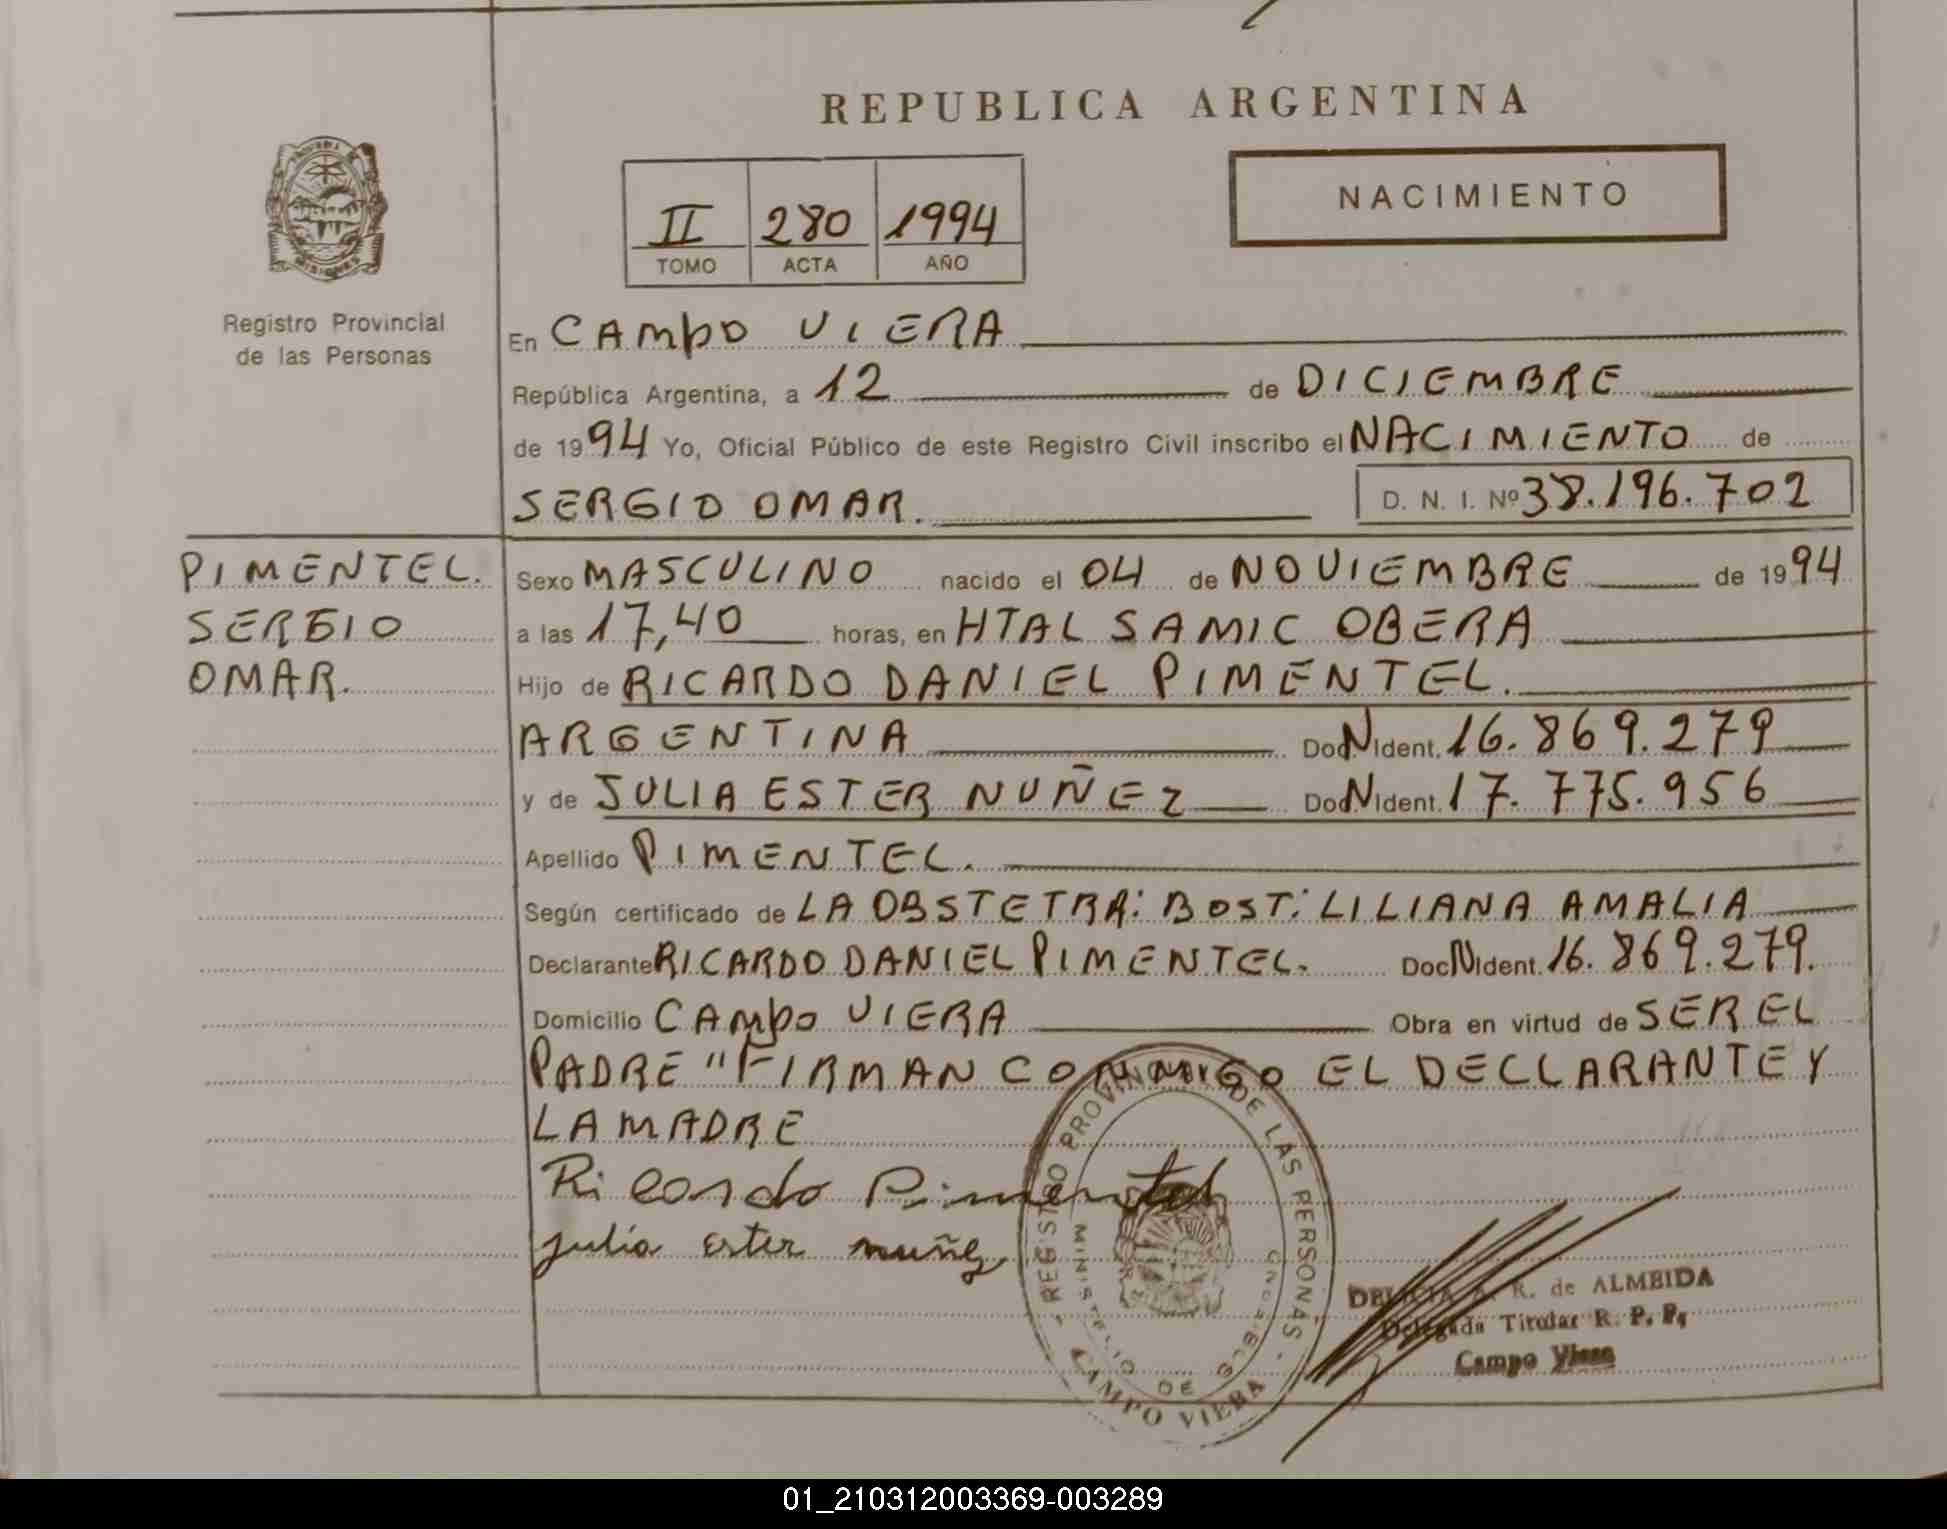 REPUBLICA ARGENTINA
NACIMIENTO
II 280 1994
TOMO ACTA AÑO
MISIONES
Registro Provincial
de las Personas
En CAMPO VIERA
República Argentina, a 12 de DICIEMBRE
de 1994 Yo, Oficial Público de este Registro Civil inscribo el NACIMIENTO de
SERGIO OMAR. D. N. I. Nº 38.196.702
PIMENTEL.
SERGIO
OMAR.
Sexo MASCULINO nacido el 04 de NOVIEMBRE de 1994
a las 17,40 horas, en HTAL SAMIC OBERA
Hijo de RICARDO DANIEL PIMENTEL.
ARGENTINA Doc N Ident. 16.869.279
y de JULIA ESTER NUÑEZ Doc N Ident. 17.775.956
Apellido PIMENTEL.
Según certificado de LA OBSTETRA: BOST: LILIANA AMALIA
Declarante RICARDO DANIEL PIMENTEL. Doc N Ident. 16.869.279.
Domicilio CAMPO VIERA Obra en virtud de SER EL
PADRE "FIRMAN CONMIGO EL DECLARANTE Y
LA MADRE
Ricardo Pimentel
julia ester nuñez
REGISTRO PROVINCIAL DE LAS PERSONAS
MINISTERIO DE GOBIERNO
CAMPO VIERA
DELICIA A. R. de ALMEIDA
Delegada Titular R. P. P.
Campo Viera
01_210312003369-003289